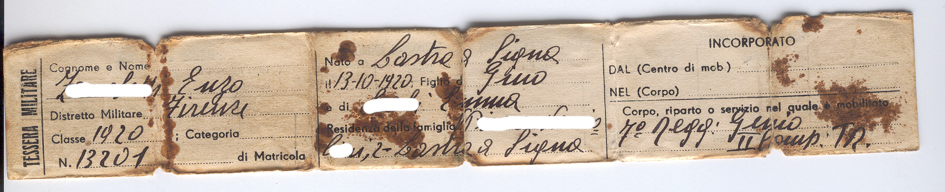 TESSERA MILITARE
Cognome e Nome
Enzo
Distretto Militare Firenze
Classe 1920 ; Categoria
N. 13201 di Matricola
Nato a Lastra a Signa
il 13-10-1920. Figlio di Gino
e di Emma
Residenza della famiglia
Lastra a Signa
INCORPORATO
DAL (Centro di mob.)
NEL (Corpo)
Corpo, riparto o servizio nel quale è mobilitato
7° Regg. Genio
II Comp. TR.